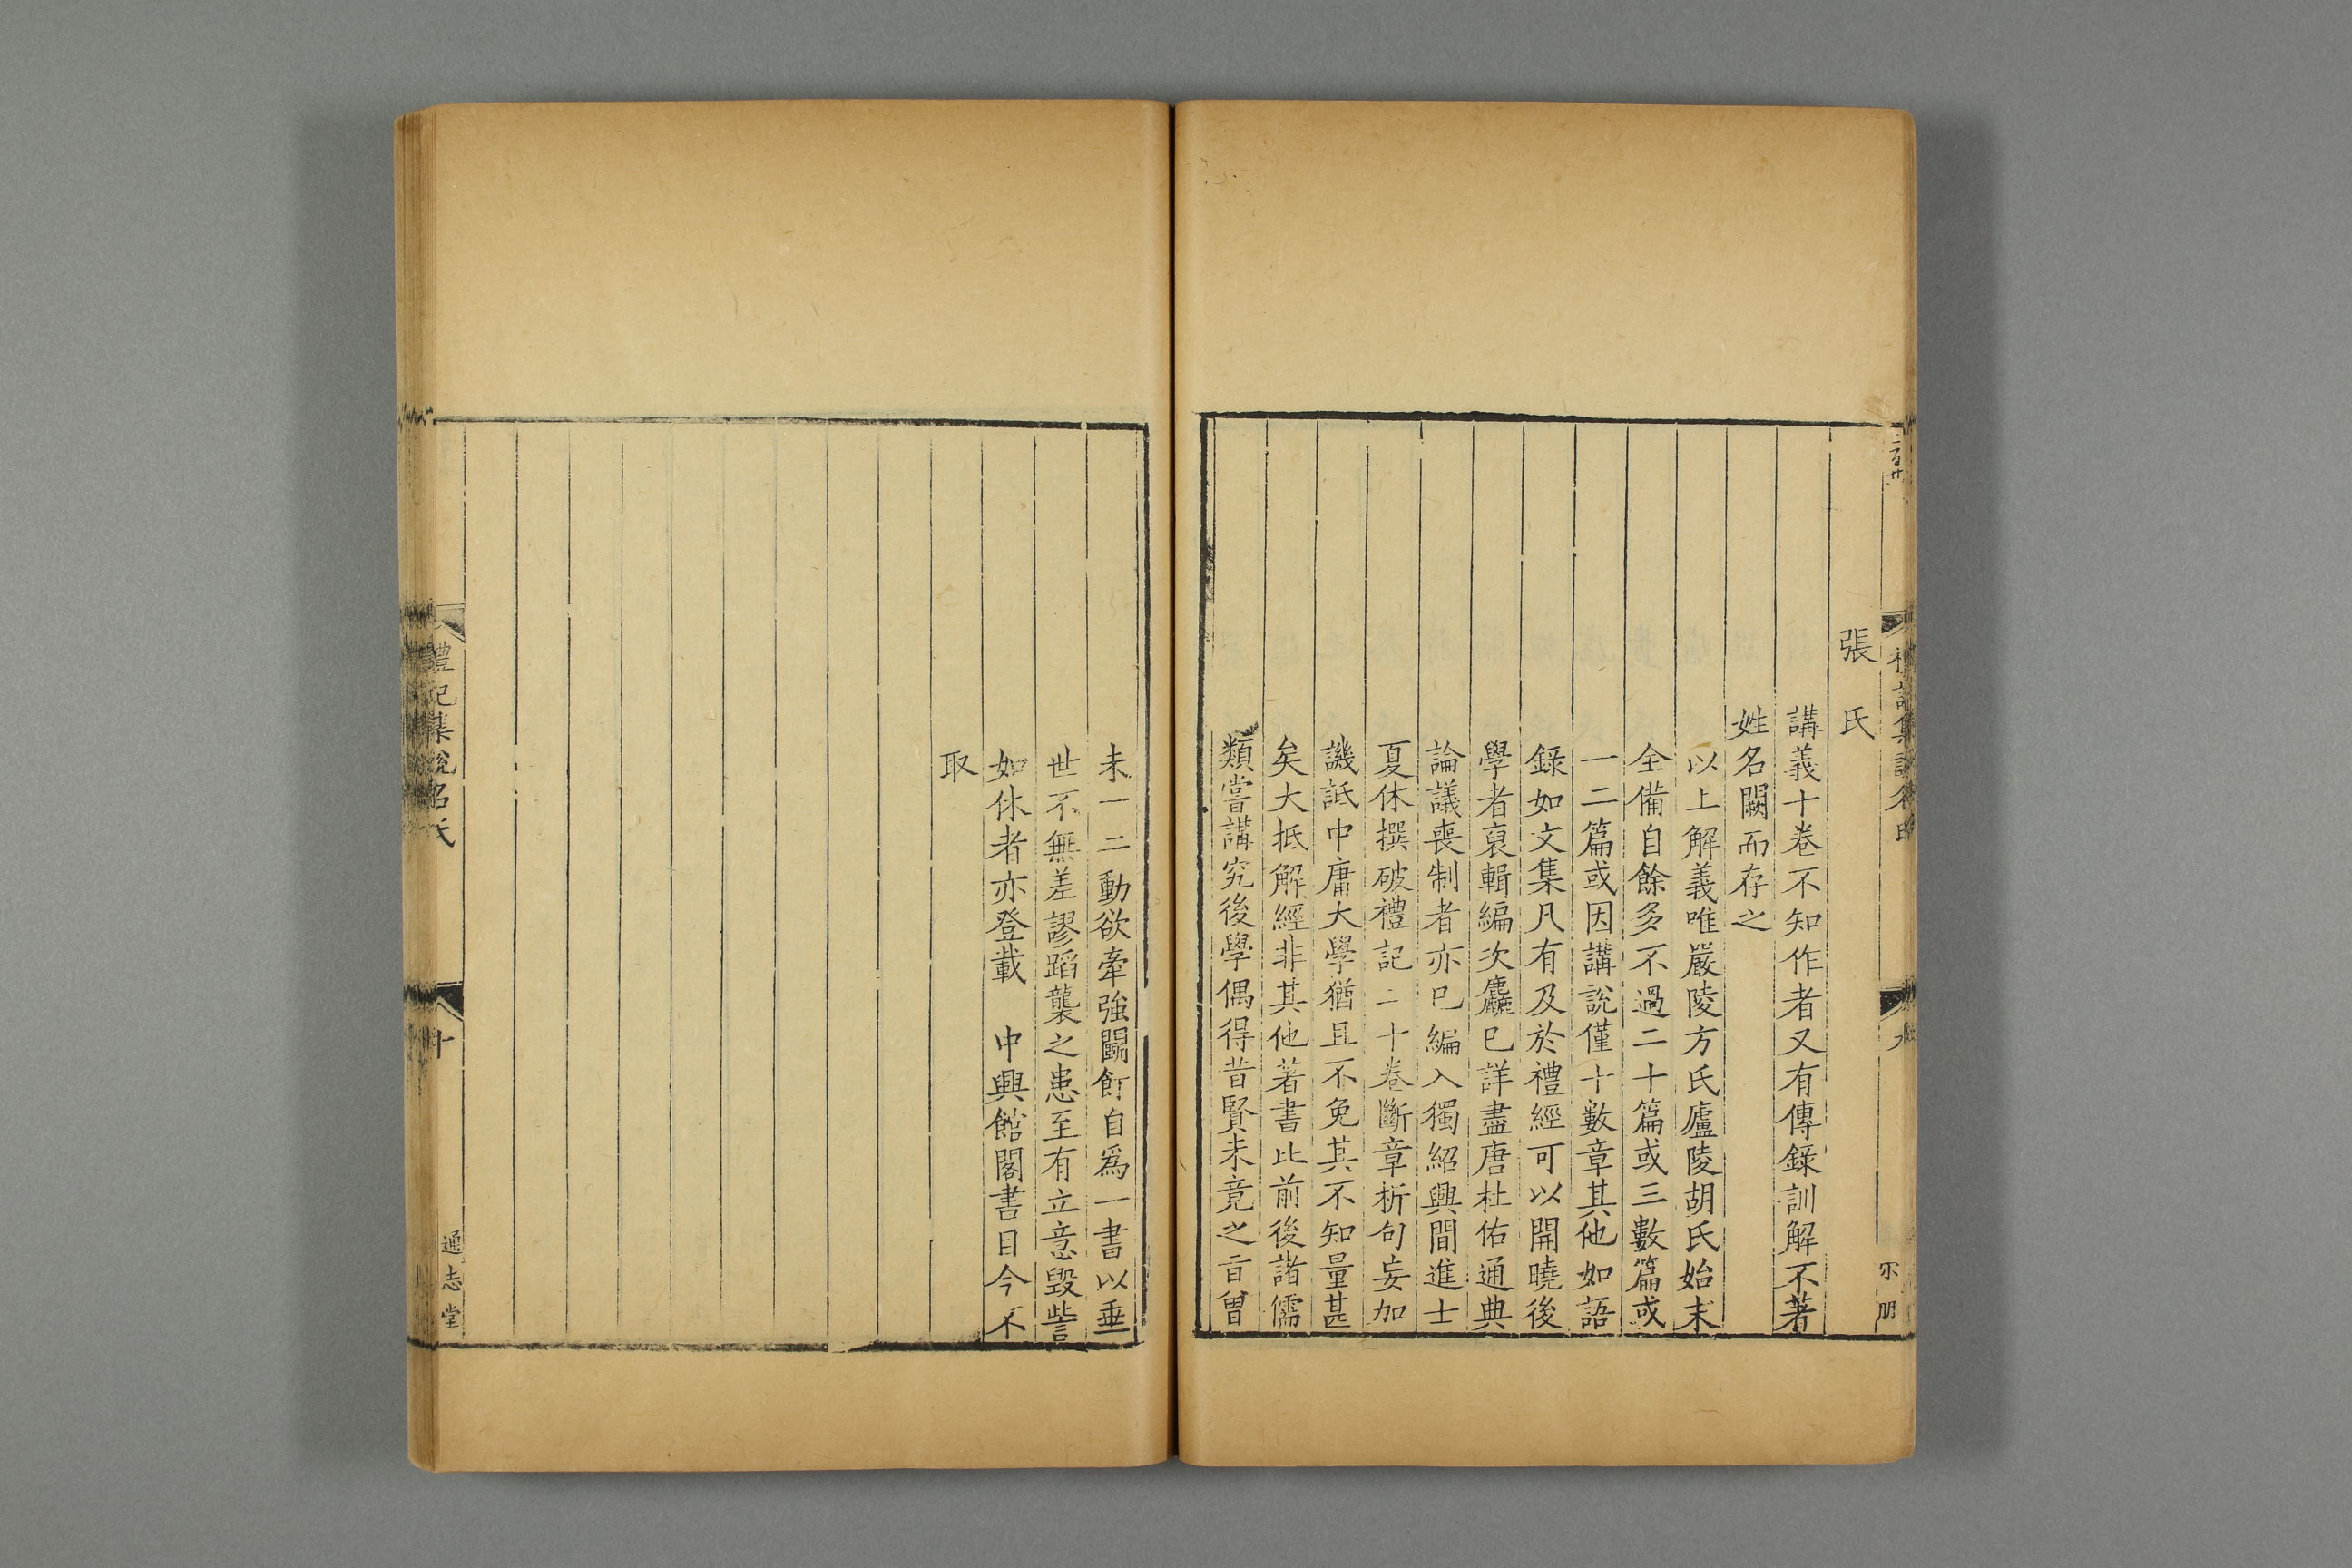 張氏
講義十卷不知作者又有傳錄訓解不著
姓名闕而存之
以上解義唯嚴陵方氏廬陵胡氏始末
全備自餘多不過二十篇或三數篇或
一二篇或因講說僅十數章其他如語
錄如文集凡有及於禮經可以開曉後
學者裒輯編次麤已詳盡唐杜佑通典
論議喪制者亦已編入獨紹興間進士
夏休撰破禮記二十卷斷章析句妄加
譏詆中庸大學猶且不免其不知量甚
矣大抵解經非其他著書比前後諸儒
類嘗講究後學偶得昔賢未竟之旨曾
未一二動欲牽強鬭飣自爲一書以垂
世不無差謬蹈襲之患至有立意毀訾
如休者亦登載　中興館閣書目今不
取
禮記集說名氏
十
通志堂